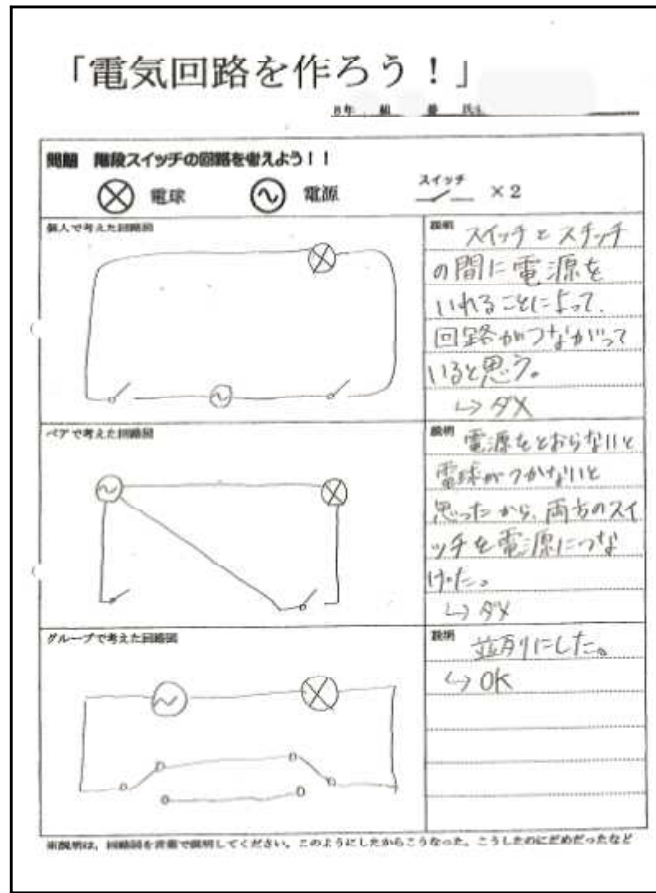 「電気回路を作ろう！」
8年 組 番 氏名
問題 階段スイッチの回路を考えよう！！
電球 電源 スイッチ ×2
個人で考えた回路図
説明 スイッチとスチッチ
の間に電源を
いれることによって、
回路がつながって
いると思う。
↳ダメ
ペアで考えた回路図
説明 電源をとおらないと
電球がつかないと
思ったから、両方のスイ
ッチを電源につな
げた。
↳ダメ
グループで考えた回路図
説明 並列にした。
↳OK
※説明は、回路図を言葉で説明してください。このようにしたからこうなった。こうしたのにだめだったなど